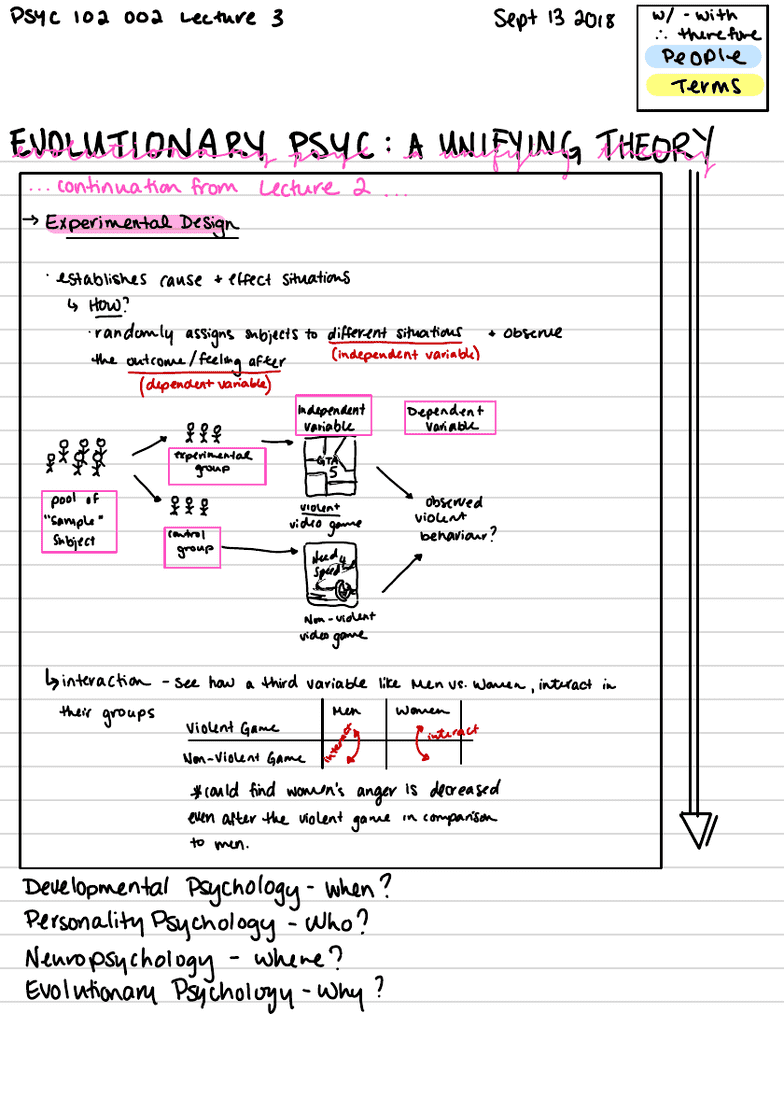 PSYC 102 002 Lecture 3
Sept 13 2018
w/ - with
∴ therefore
People
Terms
EVOLUTIONARY PSYC: A UNIFYING THEORY
evolutionary psyc: a unifying theory
... continuation from Lecture 2 ...
→ Experimental Design
· establishes cause + effect situations
↳ How?
· randomly assigns subjects to different situations + observe
(independent variable)
the outcome/feeling after
(dependent variable)
Independent
variable
Dependent
variable
experimental
group
GTA
5
violent
video game
pool of
"sample"
subject
control
group
observed
violent
behaviour?
Need 4
Speed
Non-violent
video game
↳ interaction - see how a third variable like Men vs. Women, interact in
their groups
Men
Women
Violent Game
interact
interact
Non-Violent Game
*could find women's anger is decreased
even after the violent game in comparison
to men.
Developmental Psychology - when?
Personality Psychology - Who?
Neuropsychology - where?
Evolutionary Psychology - Why?